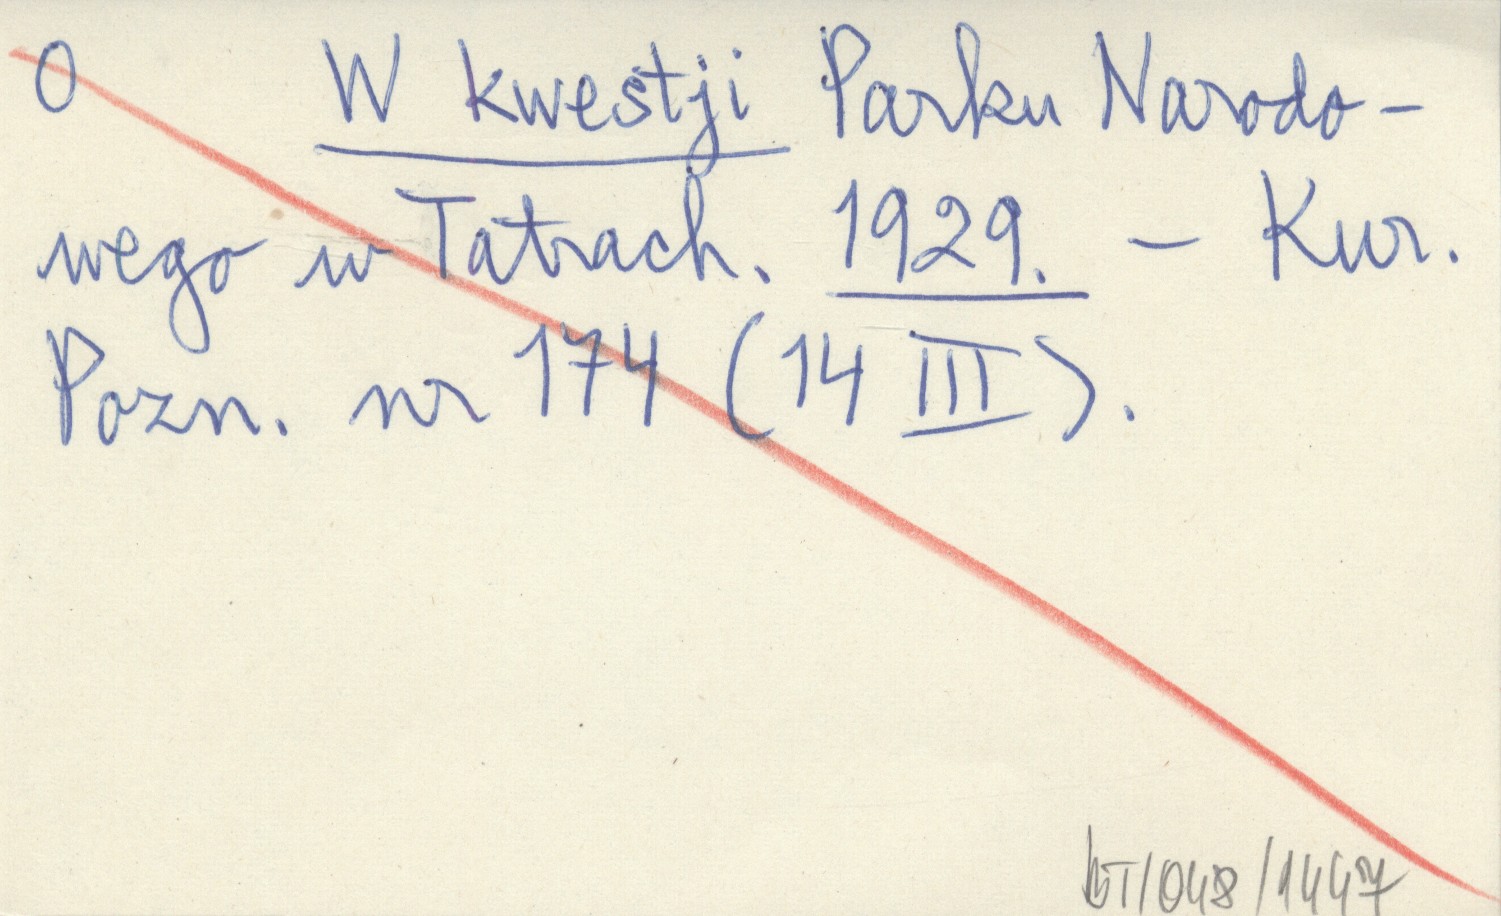 O W kwestji Parku Narodo-
wego w Tatrach. 1929. – Kur.
Pozn. nr 174 (14 III).
BT/048/1447